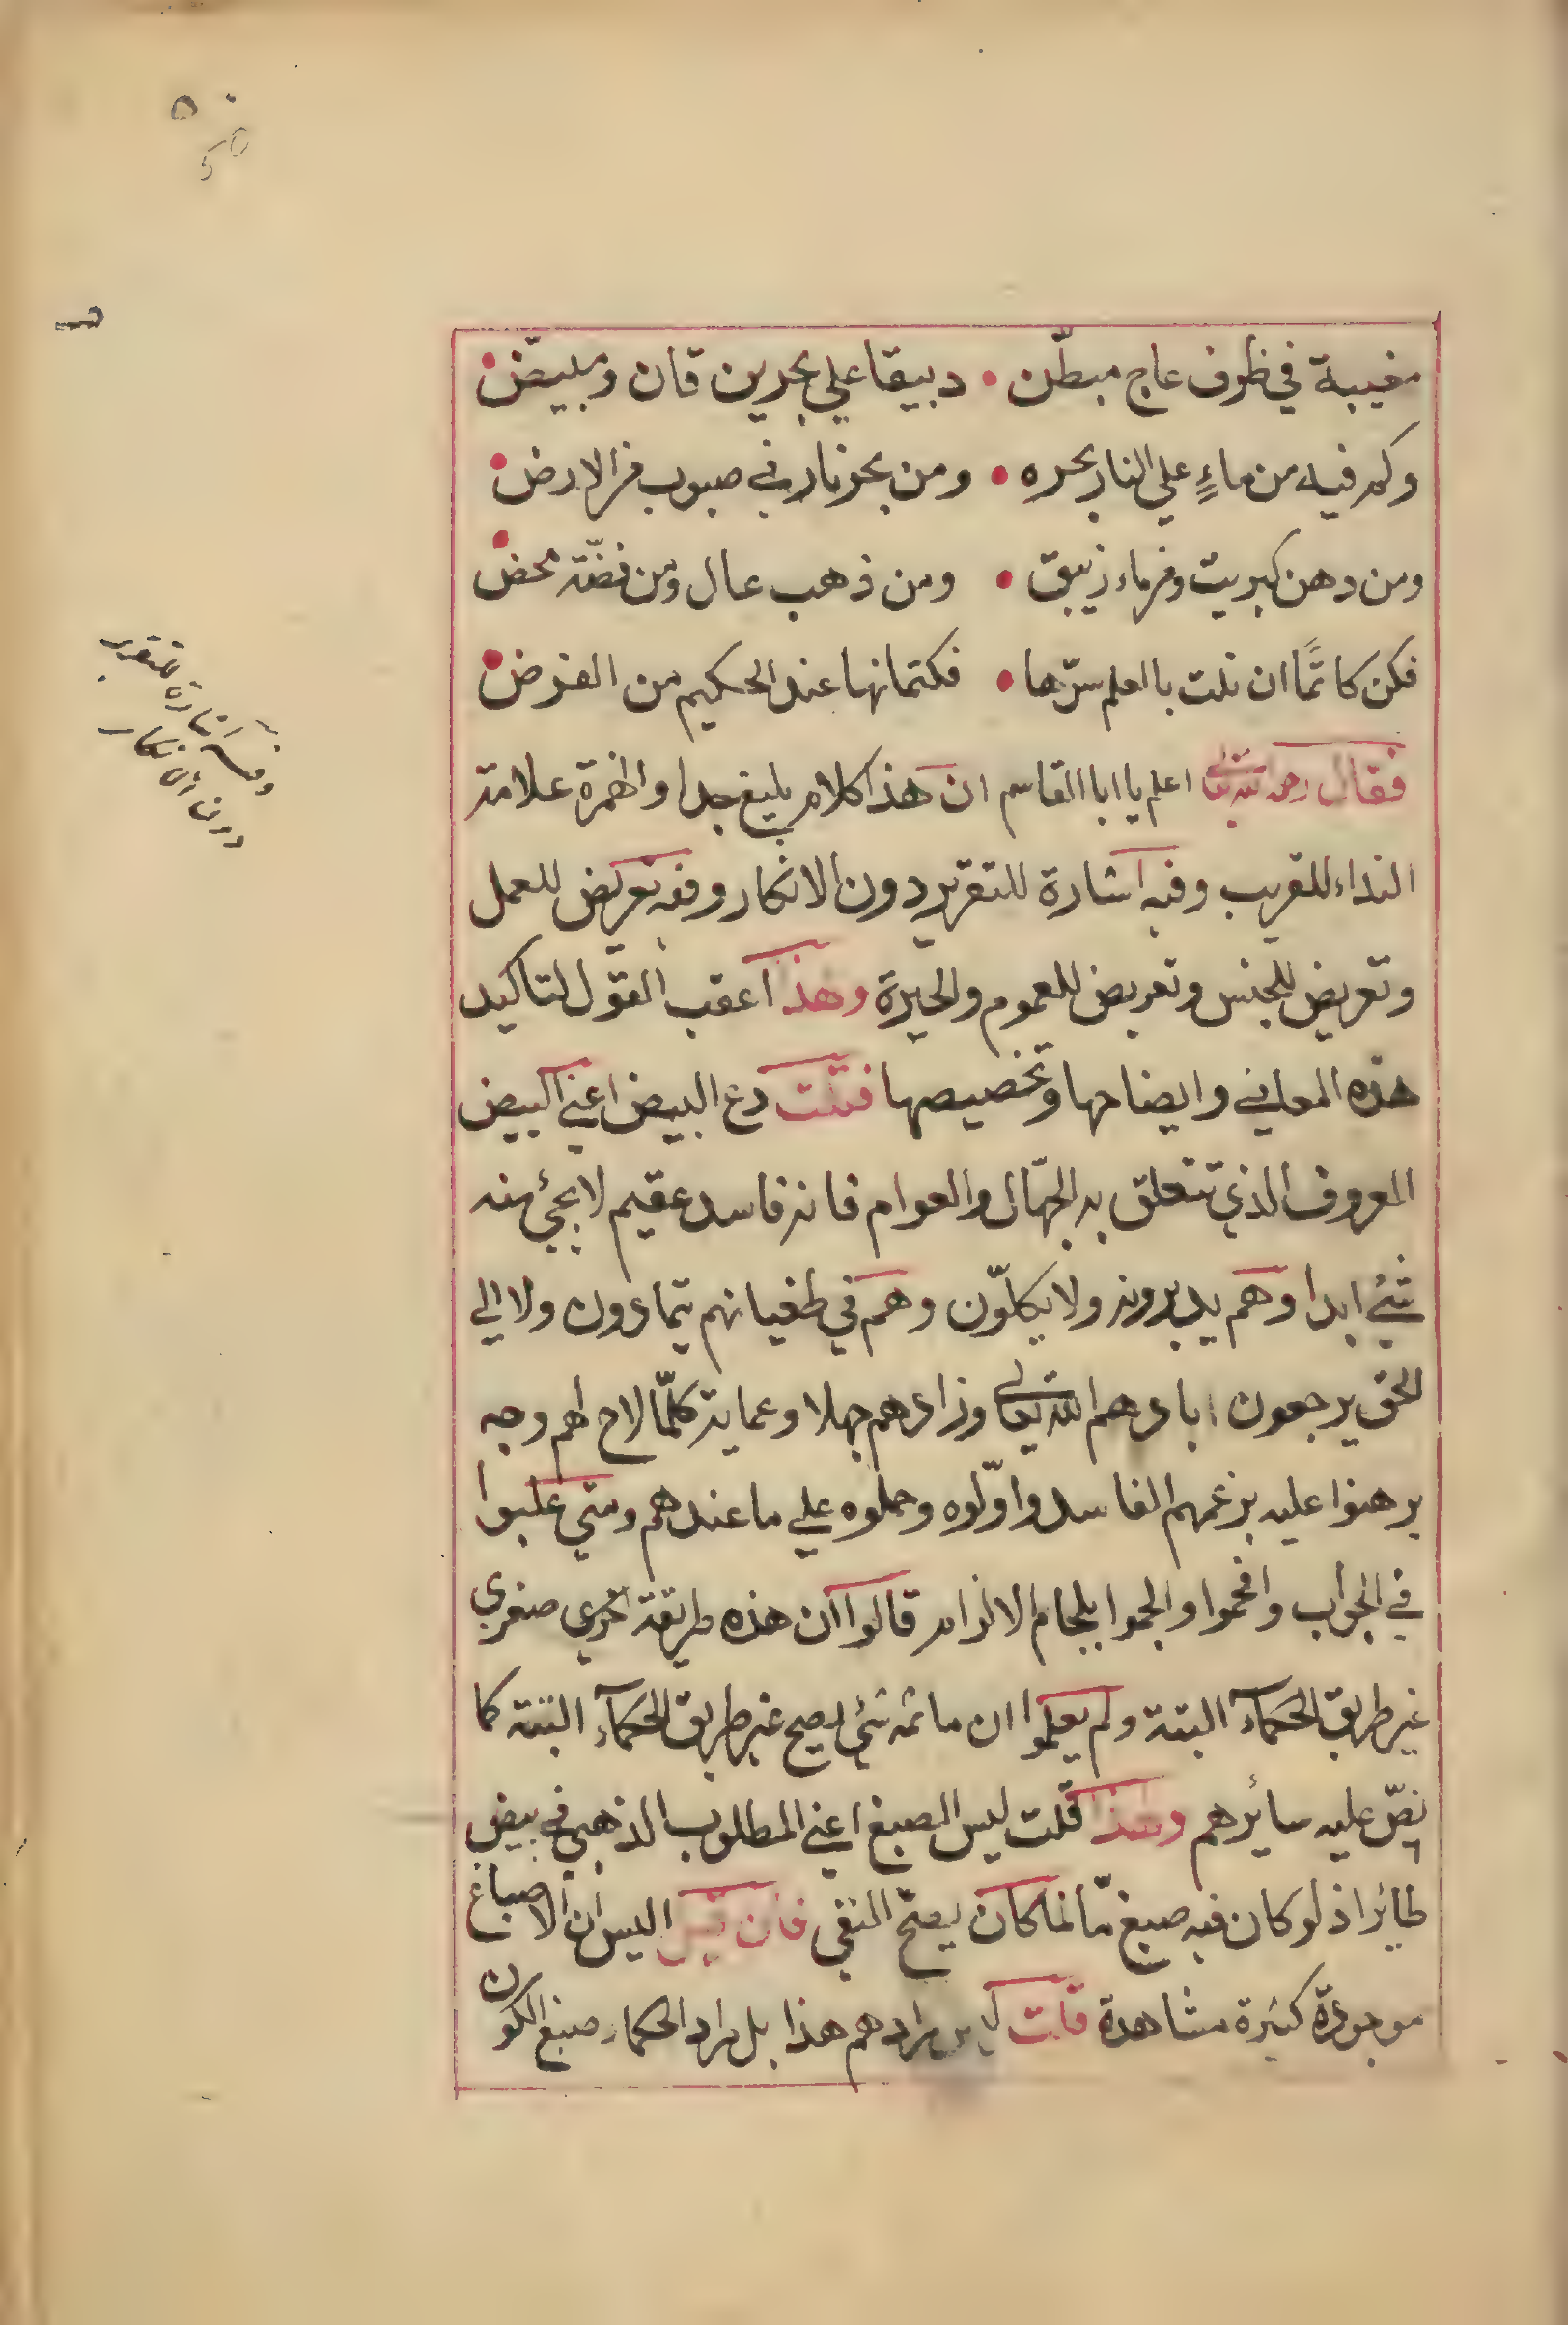 ٥٠
50
مغيبة في ظرف عاج مبطّن • دبيقا علي بحرين قان ومبيضّ •
وكم فيه من ماءٍ علي النار بحره • ومن بحر نار في صبوب من الارض •
ومن دهن كبريت ومن ماء زيبق • ومن ذهب عال ومن فضّة محض •
فكن كاتمًا ان نلت باالعلم سرّها • فكتمانها عند الحكيم من الفرض •
فقال رحمه الله تعالى اعلم يا ابا القاسم ان هذا كلام بليغ جدا والهمزة علامة
النداء للقريب وفيه اشارة للتقرير دون الانكار وفيه تعريض للعمل
وتعريض للجنس وتعريض للعموم والحيرة وهذا اعقب القول لتاكيد
هذه المعاني وايضاحها وتخصيصها فقلت دع البيض اعني البيض
المعروف الذي تتعلق به الجهّال والعوام فانه فاسد عقيم لا يجئ منه
شئ ابدا وهم يدبرونه ولا يكلّون وهم في طغيانهم يتمادون ولا الي
الحق يرجعون ابادهم الله تعالى وزادهم جهلا وعماية كلّما لاح لهم وجه
برهنوا عليه بزعمهم الفاسد واوّلوه وحملوه علي ما عندهم ومتي غلبوا
في الجواب وافحموا والجموا بلجام الالزام قالوا ان هذه طريقة اخري صغري
غير طريق الحكمآء البتة ولم يعلموا ان ما ثمه شئ يصح غير طريق الحكمآء البتة كما
نصّ عليه سايرهم وهذا قلت ليس الصبغ اعني المطلوب الذهبي في بيض
طاير اذ لو كان فيه صبغ مّا لما كان يصحّ النفي فان قيل اليس ان الاصباغ
موجودة كثيرة مشاهدة قلت ليس مرادهم هذا بل مراد الحكماء صبغ الكون
وفيه اشارة للتقرير
دون الانكار